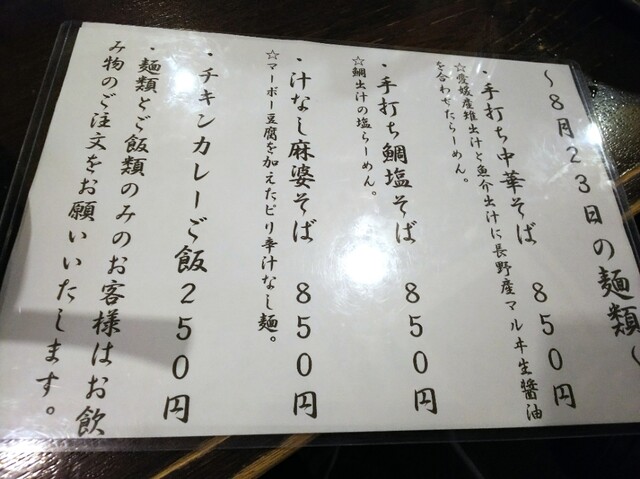 ～８月２３日の麺類～
・手打ち中華そば　８５０円
☆愛媛産雉出汁と魚介出汁に長野産マルヰ生醤油
を合わせたらーめん。
・手打ち鯛塩そば　８５０円
☆鯛出汁の塩らーめん。
・汁なし麻婆そば　８５０円
☆マーボー豆腐を加えたピリ辛汁なし麺。
・チキンカレーご飯２５０円
・麺類とご飯類のみのお客様はお飲
み物のご注文をお願いいたします。